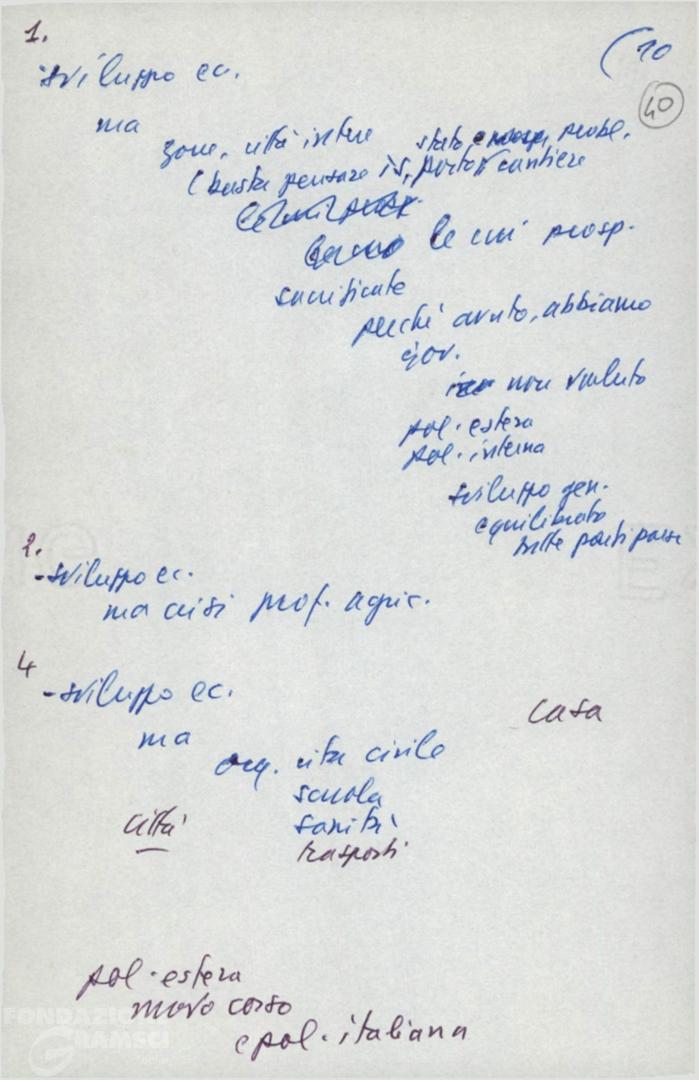 1.
(10
40
sviluppo ec.
ma
zone, città intere stato, probl.
(basta pensare is, porto, cantiere
le cui prosp.
sacrificate
perché avuto, abbiamo
gov.
non voluto
pol. estera
pol. interna
sviluppo gen.
equilibrato
tutte parti paese
2.
- sviluppo ec.
ma crisi prof. agric.
4
- sviluppo ec.
casa
ma
org. vita civile
scuola
città
sanità
trasporti
pol. estera
nuovo corso
e pol. italiana
FONDAZIONE
GRAMSCI